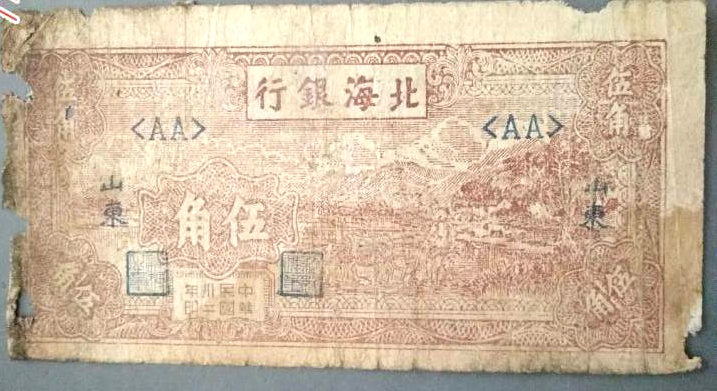 北海銀行
伍角
伍角
<AA>
<AA>
山東
山東
伍角
中華民國卅二年印
伍角
伍角